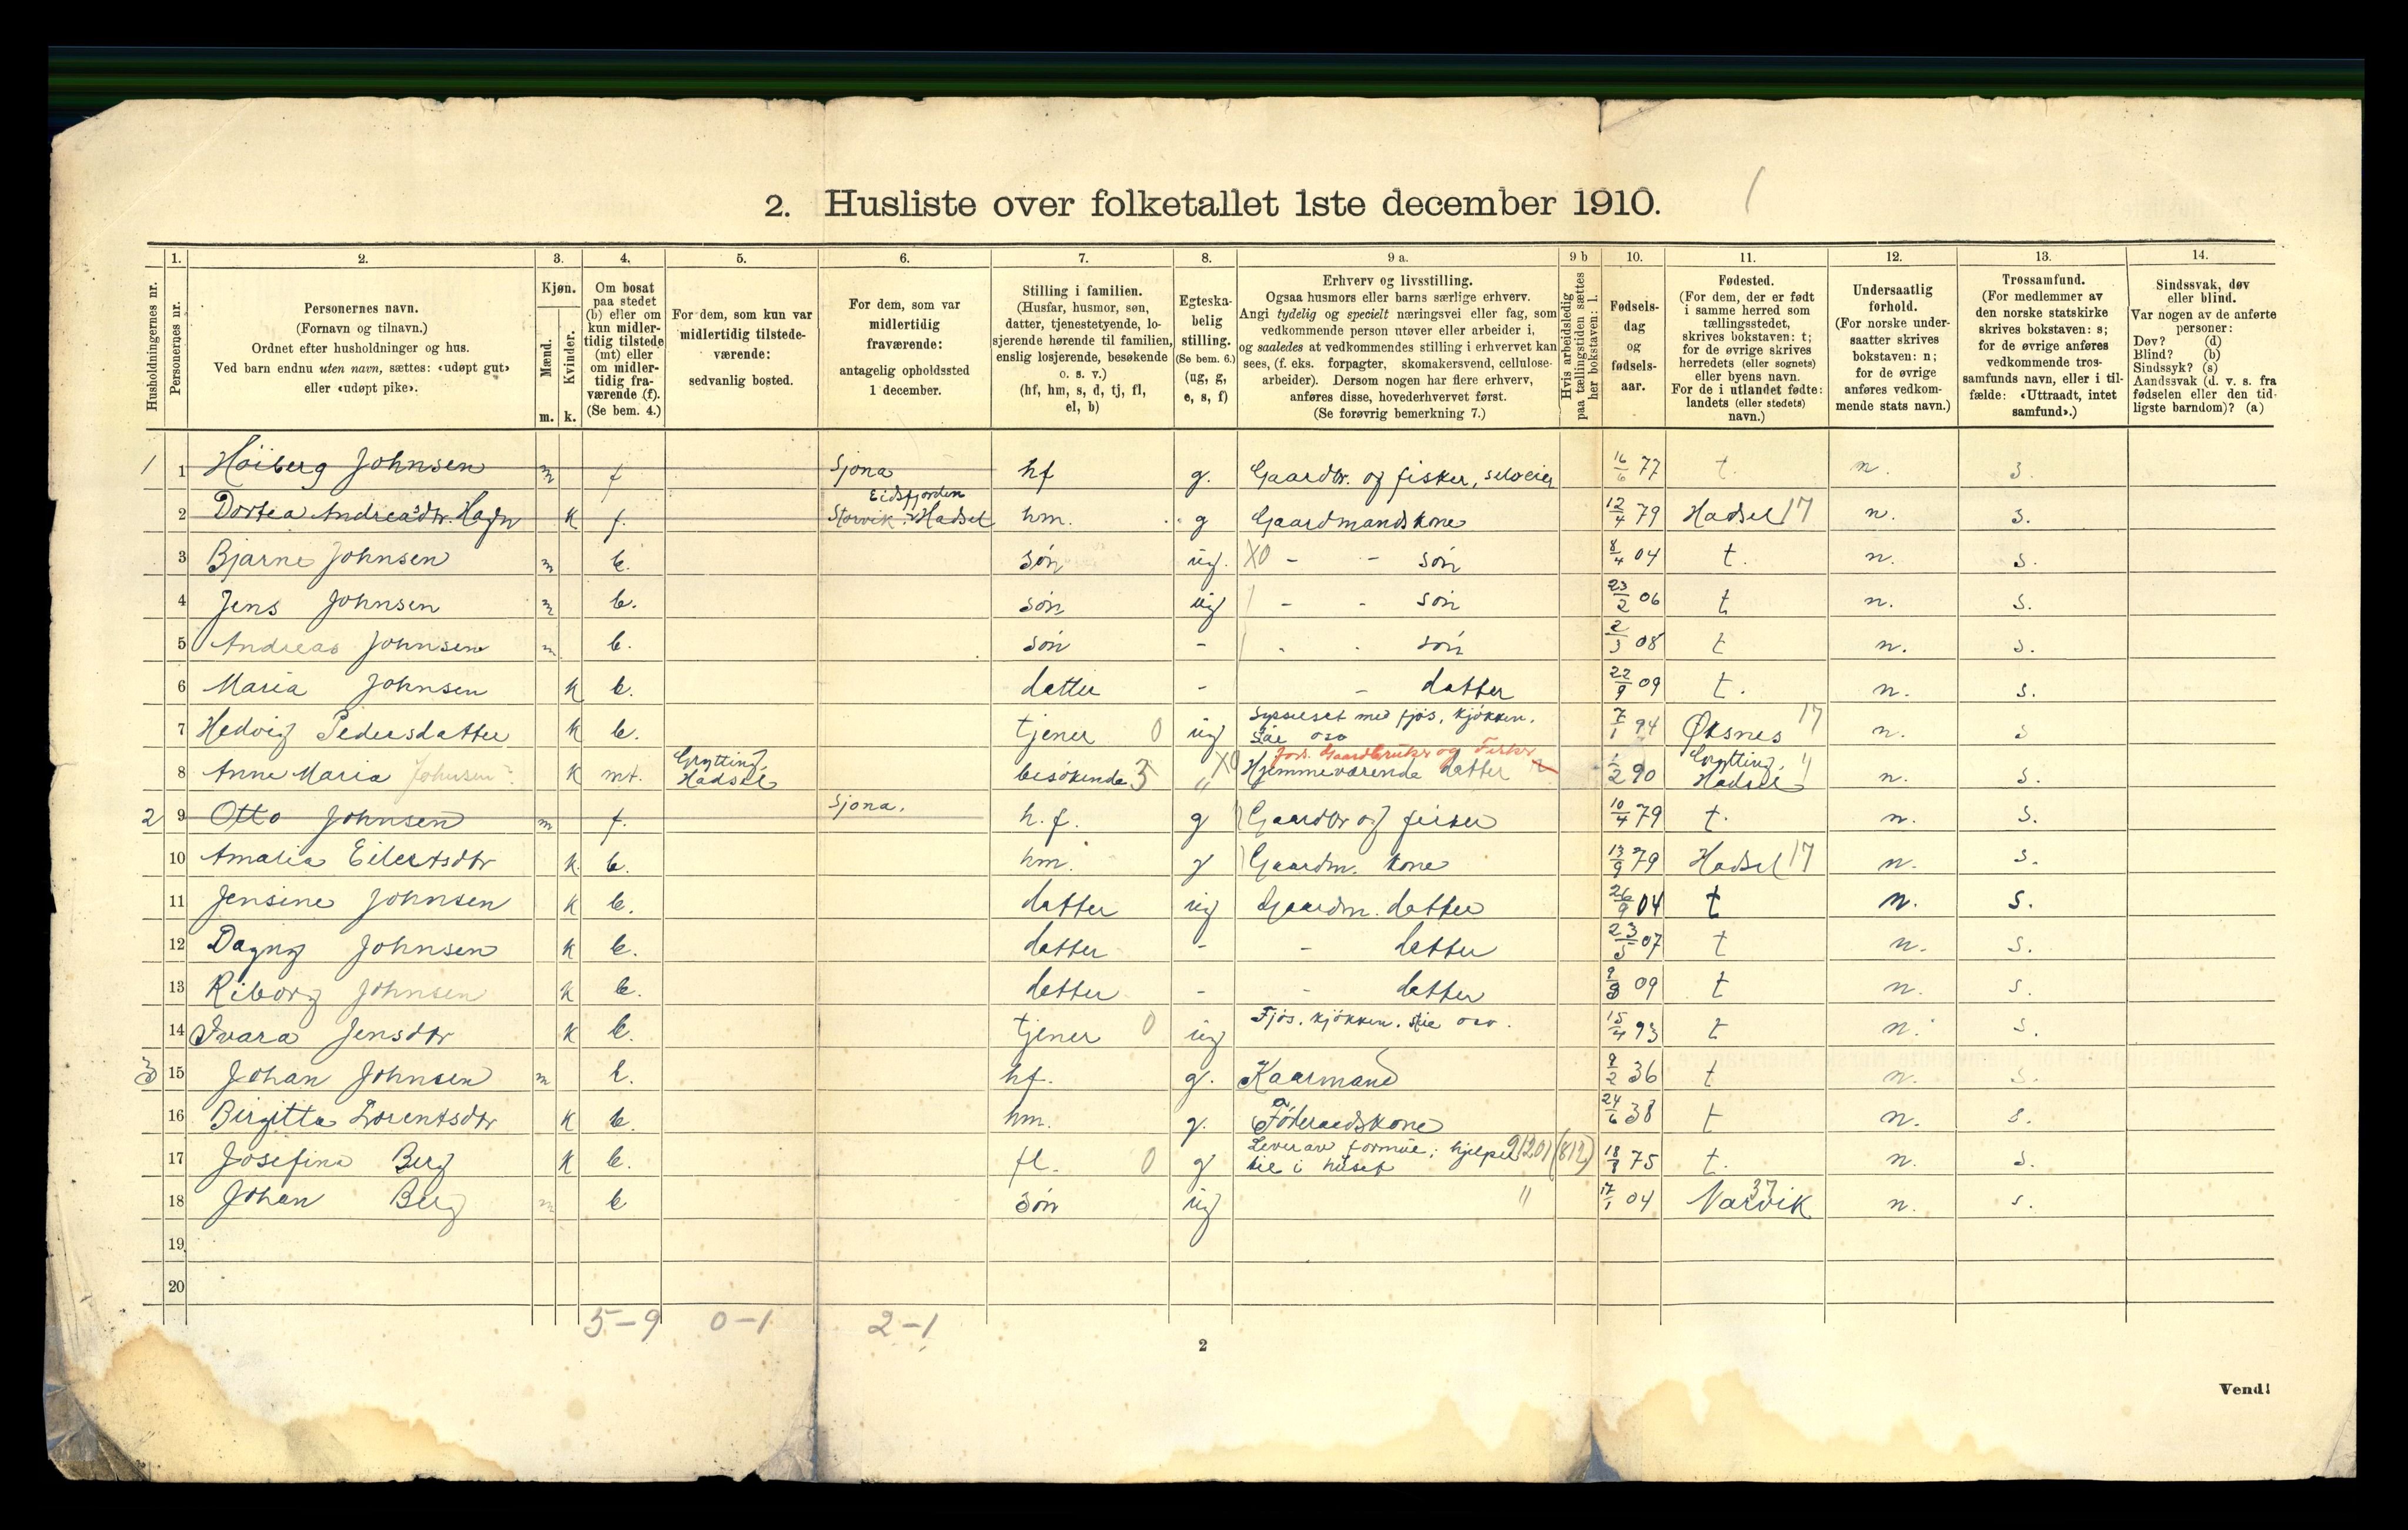 2. Husliste over folketallet 1ste december 1910.
Husholdningernes nr.
1. Personernes nr.
2.
Personernes navn.
(Fornavn og tilnavn.)
Ordnet efter husholdninger og hus.
Ved barn endnu uten navn, sættes: «udøpt gut»
eller «udøpt pike».
3.
Kjøn.
Mænd. m.
Kvinder. k.
4.
Om bosat
paa stedet
(b) eller om
kun midler-
tidig tilstede
(mt) eller
om midler-
tidig fra-
værende (f).
(Se bem. 4.)
5.
For dem, som kun var
midlertidig tilstede-
værende:
sedvanlig bosted.
6.
For dem, som var
midlertidig
fraværende:
antagelig opholdssted
1 december.
7.
Stilling i familien.
(Husfar, husmor, søn,
datter, tjenestetyende, lo-
sjerende hørende til familien,
enslig losjerende, besøkende
o. s. v.)
(hf, hm, s, d, tj, fl,
el, b)
8.
Egteska-
belig
stilling.
(Se bem. 6.)
(ug, g,
e, s, f)
9 a.
Erhverv og livsstilling.
Ogsaa husmors eller barns særlige erhverv.
Angi tydelig og specielt næringsvei eller fag, som
vedkommende person utøver eller arbeider i,
og saaledes at vedkommendes stilling i erhvervet kan
sees, (f. eks. forpagter, skomakersvend, cellulose-
arbeider). Dersom nogen har flere erhverv,
anføres disse, hovederhvervet først.
(Se forøvrig bemerkning 7.)
9 b
Hvis arbeidsledig
paa tællingstiden sættes
her bokstaven: l.
10.
Fødsels-
dag
og
fødsels-
aar.
11.
Fødested.
(For dem, der er født
i samme herred som
tællingsstedet,
skrives bokstaven: t;
for de øvrige skrives
herredets (eller sognets)
eller byens navn.
For de i utlandet fødte:
landets (eller stedets)
navn.)
12.
Undersaatlig
forhold.
(For norske under-
saatter skrives
bokstaven: n;
for de øvrige
anføres vedkom-
mende stats navn.)
13.
Trossamfund.
(For medlemmer av
den norske statskirke
skrives bokstaven: s;
for de øvrige anføres
vedkommende tros-
samfunds navn, eller i til-
fælde: «Uttraadt, intet
samfund».)
14.
Sindssvak, døv
eller blind.
Var nogen av de anførte
personer:
Døv? (d)
Blind? (b)
Sindssyk? (s)
Aandssvak (d. v. s. fra
fødselen eller den tid-
ligste barndom)? (a)
1 1 Høiberg Johnsen m f Sjona hf g. Gaardbr. og fisker, selveier 16/6 77 t. n. s.
2 Dortea Andreasdtr. Hagn k f. Eidsfjorden Storvik. Hadsel hm. g Gaardmandskone 12/4 79 Hadsel 17 n. s.
3 Bjarne Johnsen m b. søn ug. XO - - søn 8/4 04 t. n. s.
4 Jens Johnsen m b. søn ug - - søn 23/2 06 t n. s.
5 Andreas Johnsen m b. søn - - - søn 2/3 08 t n. s.
6 Maria Johnsen k b. datter - - datter 22/9 09 t. n. s.
7 Hedvig Pedersdatter k b. tjener 0 ug Sysselsat med fjøs, kjøkken, osv 7/1 94 Øksnes 17 n. s
8 Anne Maria Johnsen? k mt. Grytting, Hadsel besøkende 3 " XO Fors. Gaardbruker og Fisker Hjemmeværende datter 1/2 90 Grytting, Hadsel n. s.
2 9 Otto Johnsen m f. Sjona. h.f. g Gaardbr og fisker 10/4 79 t. n. s.
10 Amalia Eilertsdtr k b. hm. g Gaardm. kone 13/9 79 Hadsel 17 n. s.
11 Jensine Johnsen k b. datter ug Gaardm. datter 26/9 04 t n. s.
12 Dagny Johnsen k b. datter - - datter 23/5 07 t n. s.
13 Riborg Johnsen k b. datter - - datter 09 t n. s.
14 Ivara Jensdtr k b. tjener 0 ug Fjøs, kjøkken, osv. 15/4 93 t n. s.
3 15 Johan Johnsen m b. hf. g. Kaarmand 8/2 36 t n. s.
16 Birgitta Lorentsdtr k b. hm. g. Føderaadskone 24/6 38 t n. s.
17 Josefina Berg k b. fl. 0 g Lever av formue; hjelper til i huset 9120 (812) 18/8 75 t. n. s.
18 Johan Berg m b søn ug " 17/1 04 Narvik 37 n. s.
19
20
5-9 0-1 2-1
2
Vend!